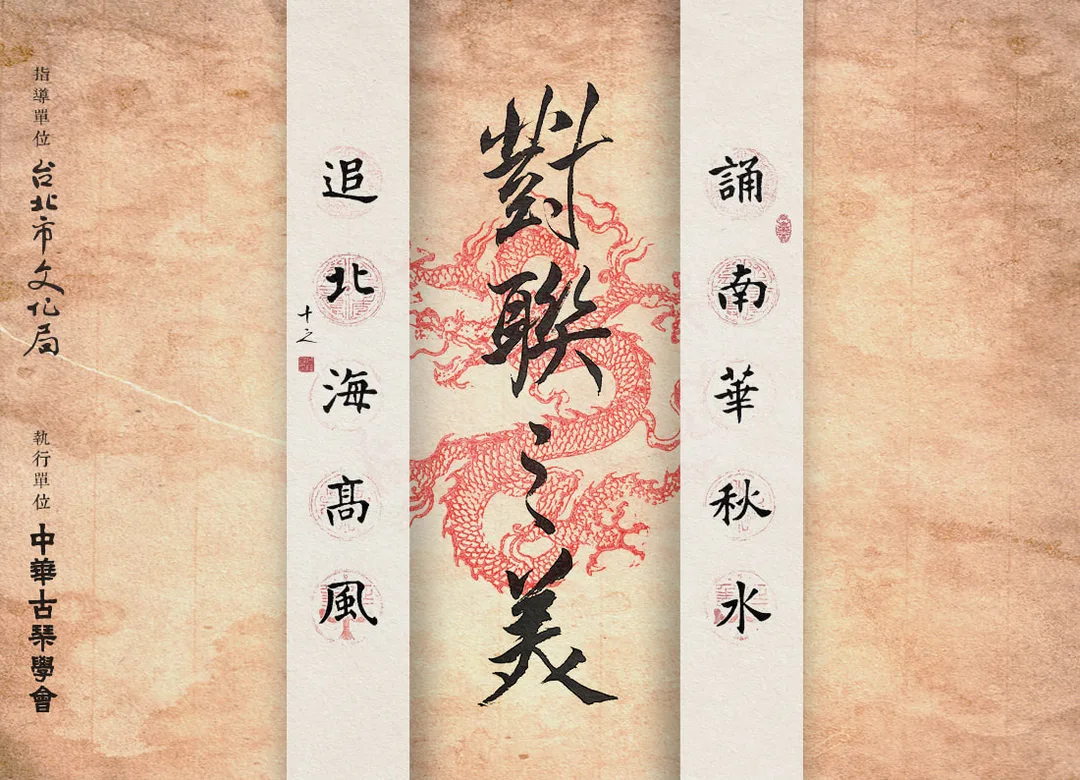 誦南華秋水
對聯之美
追北海高風
十之
指導單位 台北市文化局
執行單位 中華古琴學會